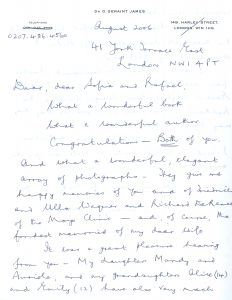 Dr D. GERAINT JAMES
TELEPHONE
0207.486.4560
149, HARLEY STREET,
LONDON, W1N 1HG
August 2006
41 York Terrace East
London NW1 4PT
Dear, dear Sofia and Rafael,
What a wonderful book
What a wonderful author
Congratulations – Both of you.
And what a wonderful, elegant
array of photographs – They give me
happy memories of you and of
and Ulla Wagner and Richard
of the Mayo Clinic – and, of course, the
fondest memories of my dear wife.
It was a great pleasure hearing
from you – My daughter Mandy and
and my grandaughters (14)
and Emily (12) have also very much